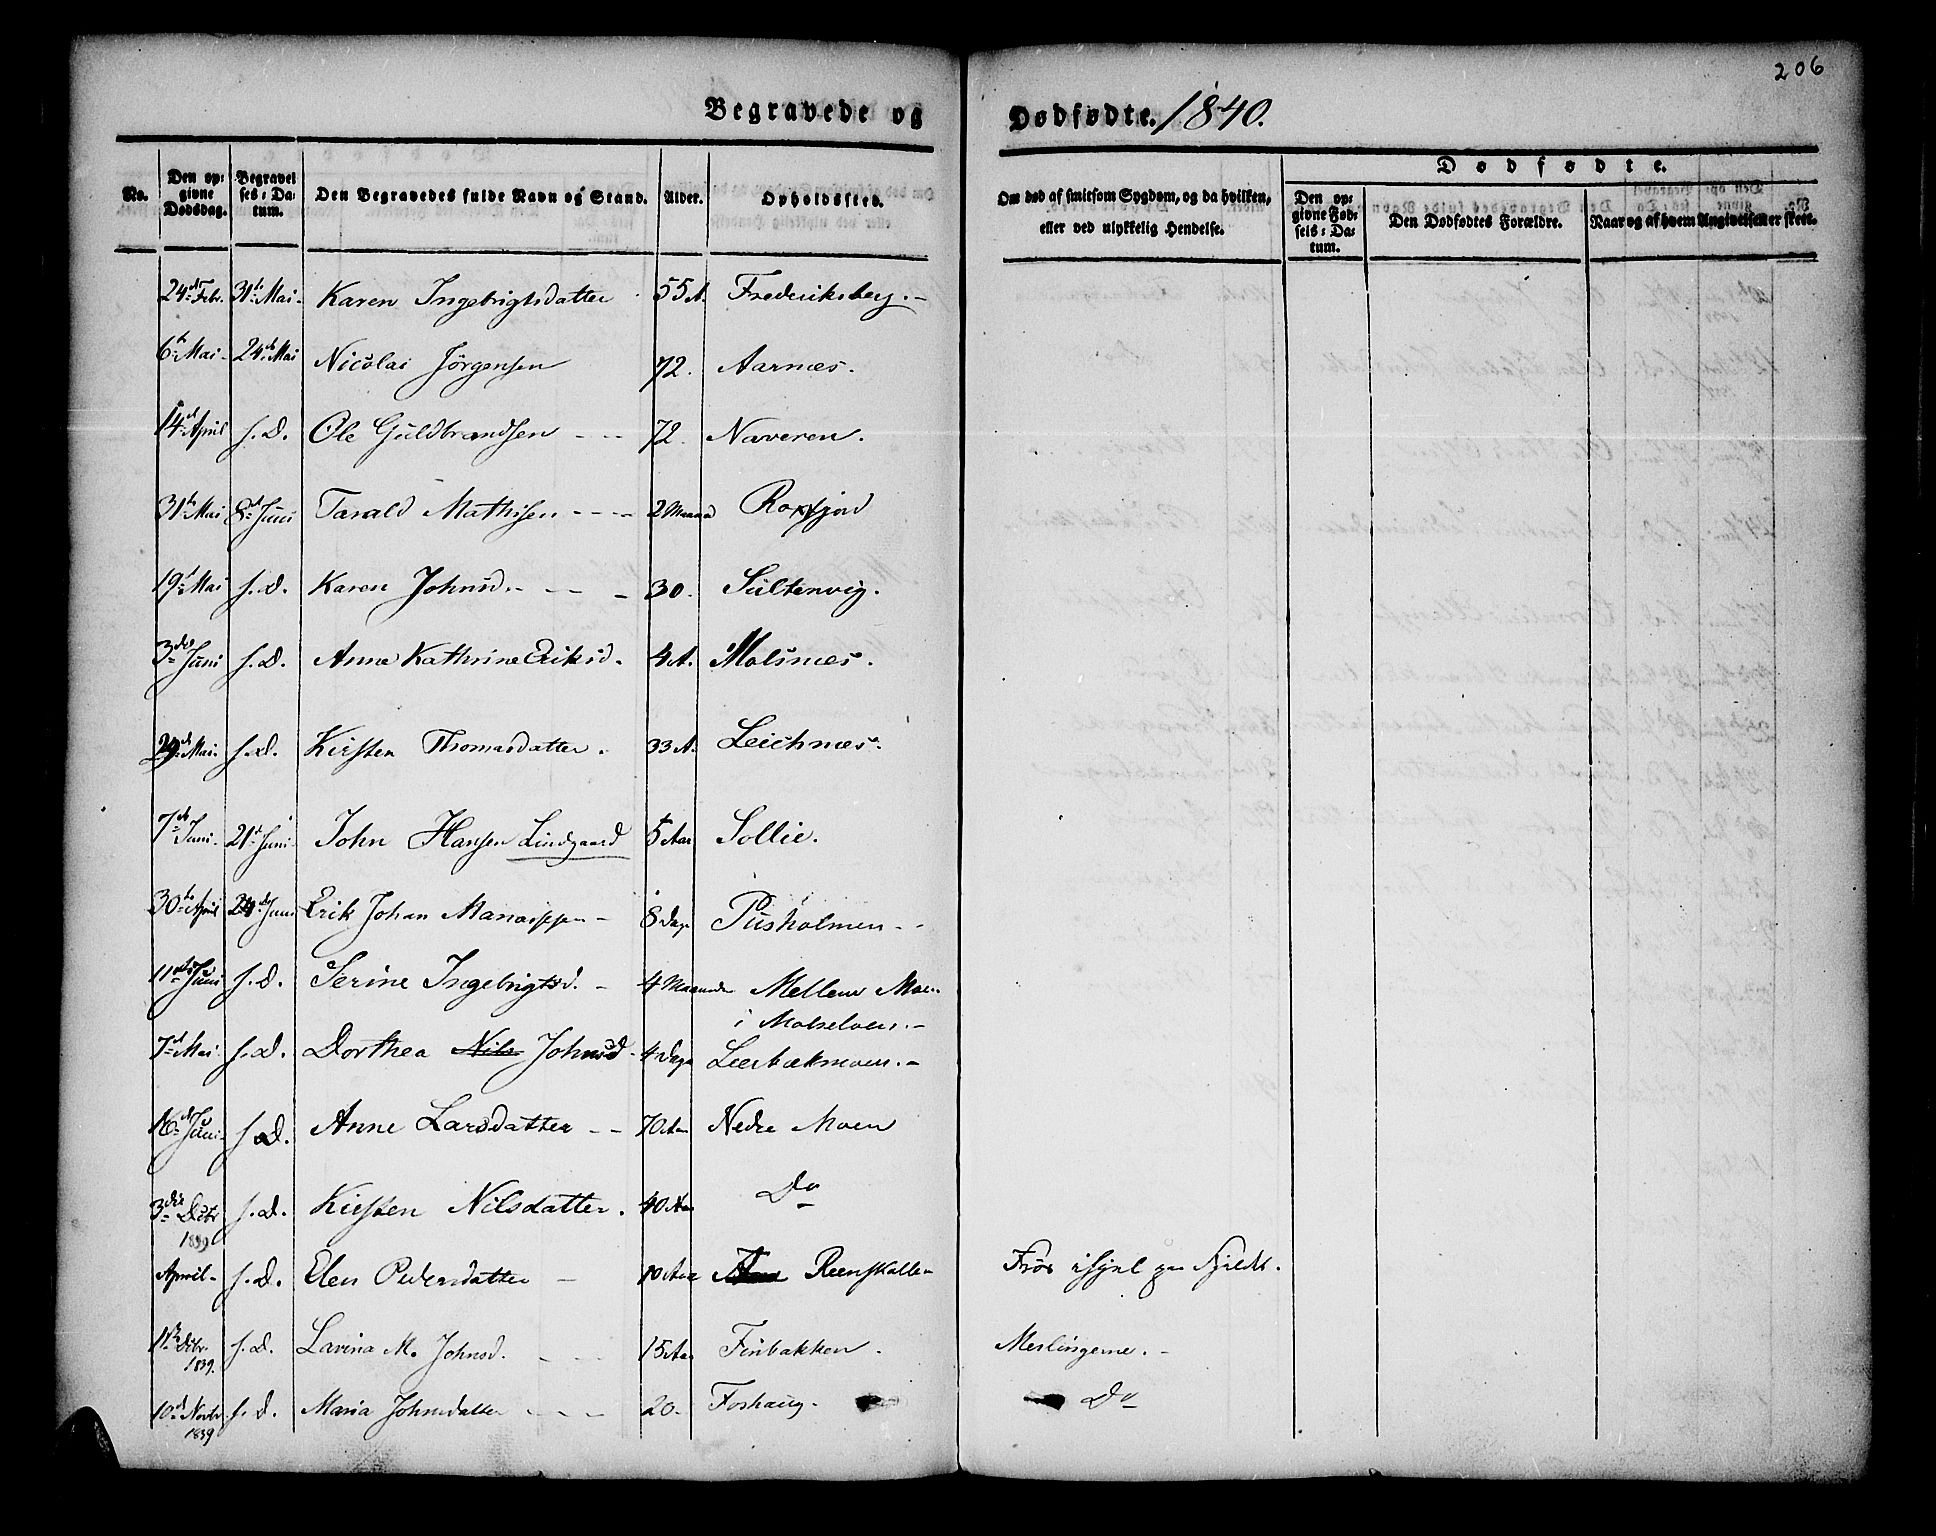 206
Begravede og Dødfødte. 1840.
No. | Den op: givne Dødsdag. | Begravel ses: Da: tum. | Den Begravedes fulde Navn og Stand. | Alder. | Opholdssted. | Om død af smitsom Sygdom, og da hvilken, eller ved ulykkelig Hendelse. | Dødfødte. | Den op: givne Fød: sels: Da: tum. | Den Dødfødtes Forældre. | Naar og af hvem Angivelsen er skeet.
24de Febr. | 31te Mai- | Karen Ingebrigtsdatter | 55 A. | Frederiksberg.-
6te Mai- | 24de Mai | Nicolai Jörgensen | 72. | Aarnæs.
14de April | s. D. | Ole Guldbrandsen - - - | 72. | Naveren.
31te Mai | 8de Juni | Tarald Mathisen - - - - | 2 Maaned | Roxfjord
19de Mai | s. D. | Karen Johnsd. - - - - | 30. | Sultenvig.
3die Juni | s. D. | Anne Kathrine Eriksd. | 4 A. | Molsnæs.
29de Mai. | s. D. | Kirsten Thomasdatter. | 33 A. | Leichnæs.
7de Juni. | 21de Juni- | John Hansen Lindgaard | 5 Aar | Sollie.
30te April | 24de Juni | Erik Johan - | 8 Dage | Pusholmen - -
11te Juni | s. D. | Serine Ingebrigtsd. - | 4 Maaneder | Mellem Moen
i Maaselven.-
7de Mai | s. D. | Dorthea Nils Johnsd. | 4 Dage | Leerbækmoen.-
16de Juni- | s. D. | Anne Larsdatter - - | 70 Aar | Nedre Moen
3die Dcbr 1839 | s. D. | Kirsten Nilsdatter. | 40 Aar | Do
April- | s. D. | Elen Pedersdatter - | 10 Aar | Reenskallen | Frös ihjel paa Fjeldt.
11te Dcbr. 1839. | s. D. | Lavina M. Johnsd. - - - | 15 Aar | Finbakken. | Meslingerne.-
10de Novbr 1839 | s. D. | Maria Johnsdatter - - - | 20. | Foshaug. | Do